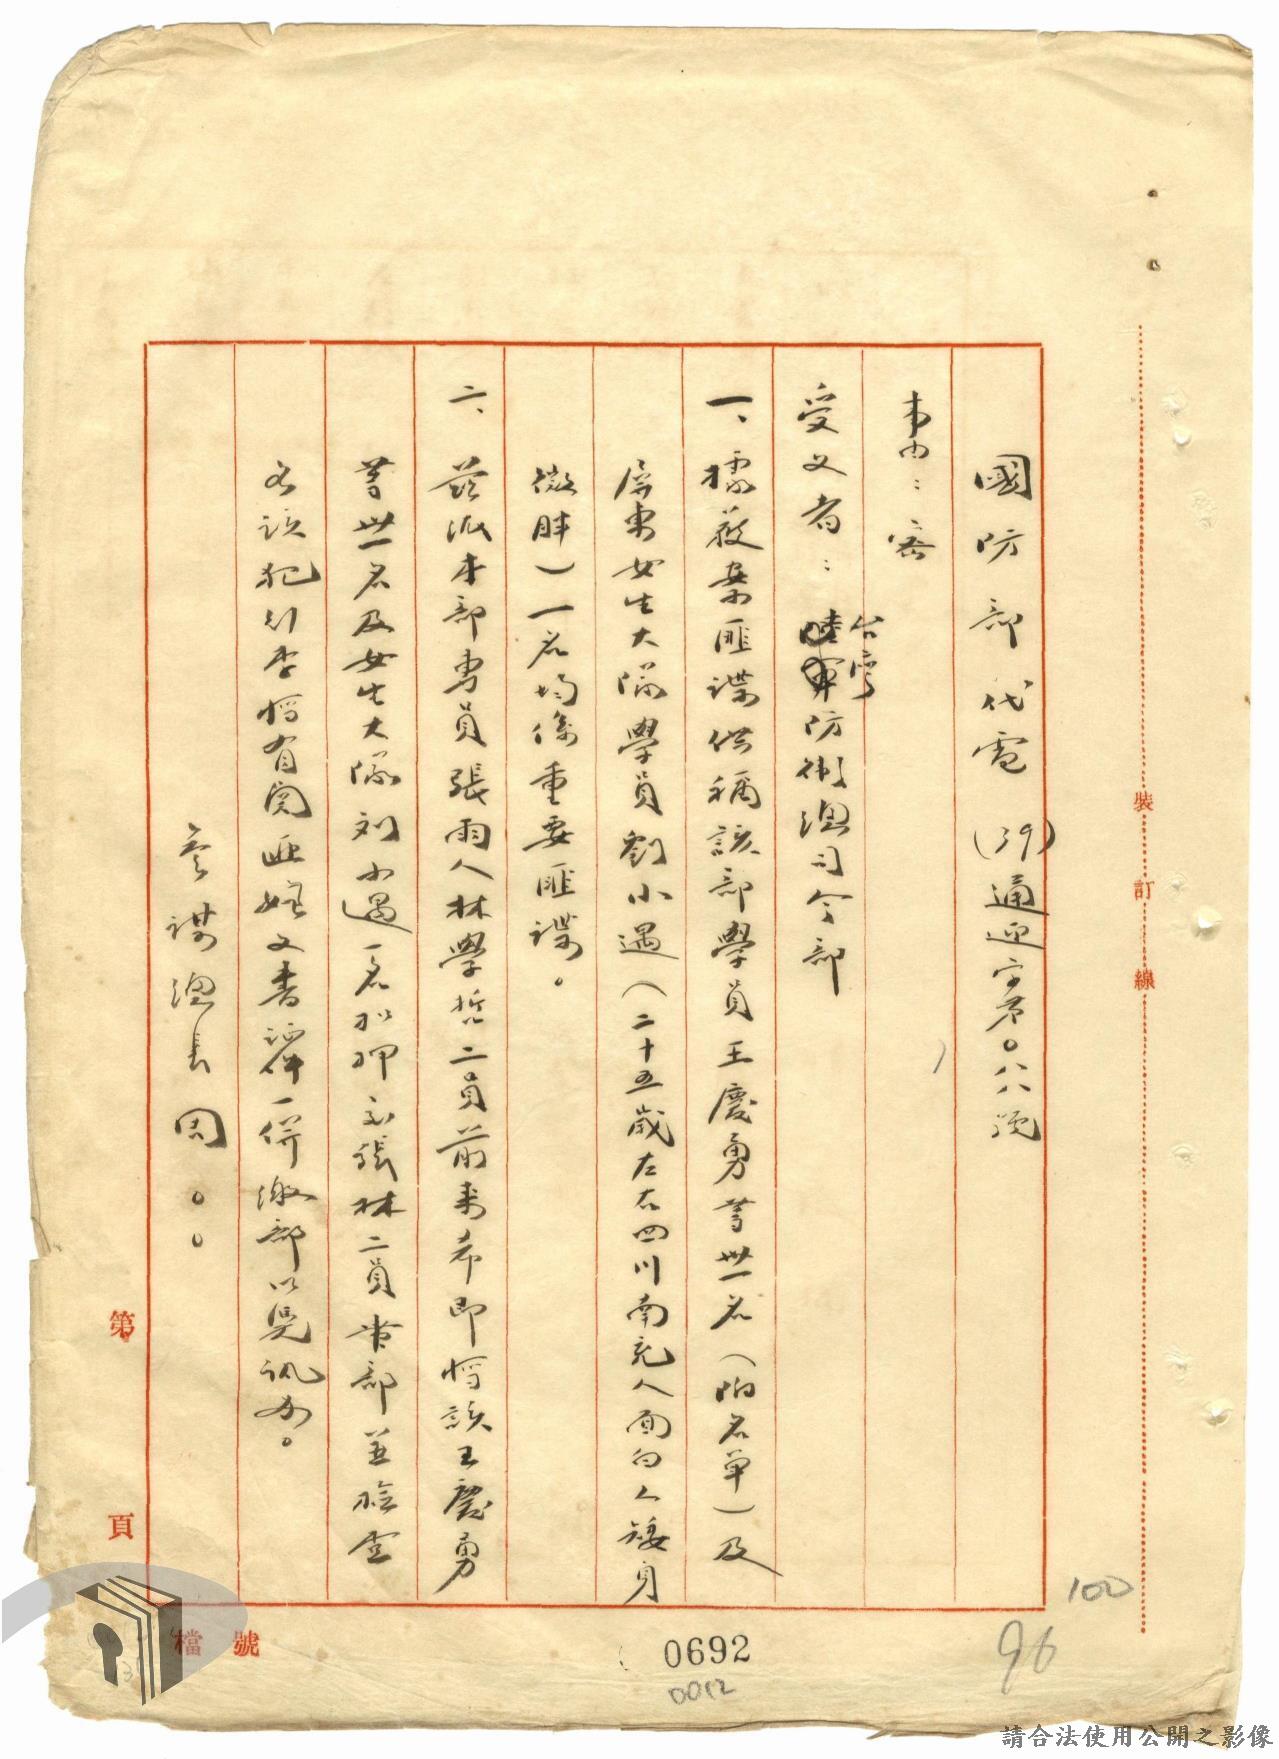 國防部代電(39)通迎字第〇八八號
事由：密
受文者：陸軍防衛總司令部
台灣
一、據莪案匪諜供稱該部學員王慶勇等卅一名(附名單)及
屏東女生大隊學員劉小遇(二十五歲左右四川南充人面白人矮身
微胖)一名均係重要匪諜。
二、茲派本部專員張雨人林學哲二員前來希即將該王慶勇
等卅一名及女生大隊刘小遇一名扣押交張林二員帶部並檢查
各該犯行李將有関匪嫌文書證件一併繳部以凭訊办。
參謀總長周〇〇
裝訂線
第頁
檔號
0692
0012
96
100
請合法使用公開之影像